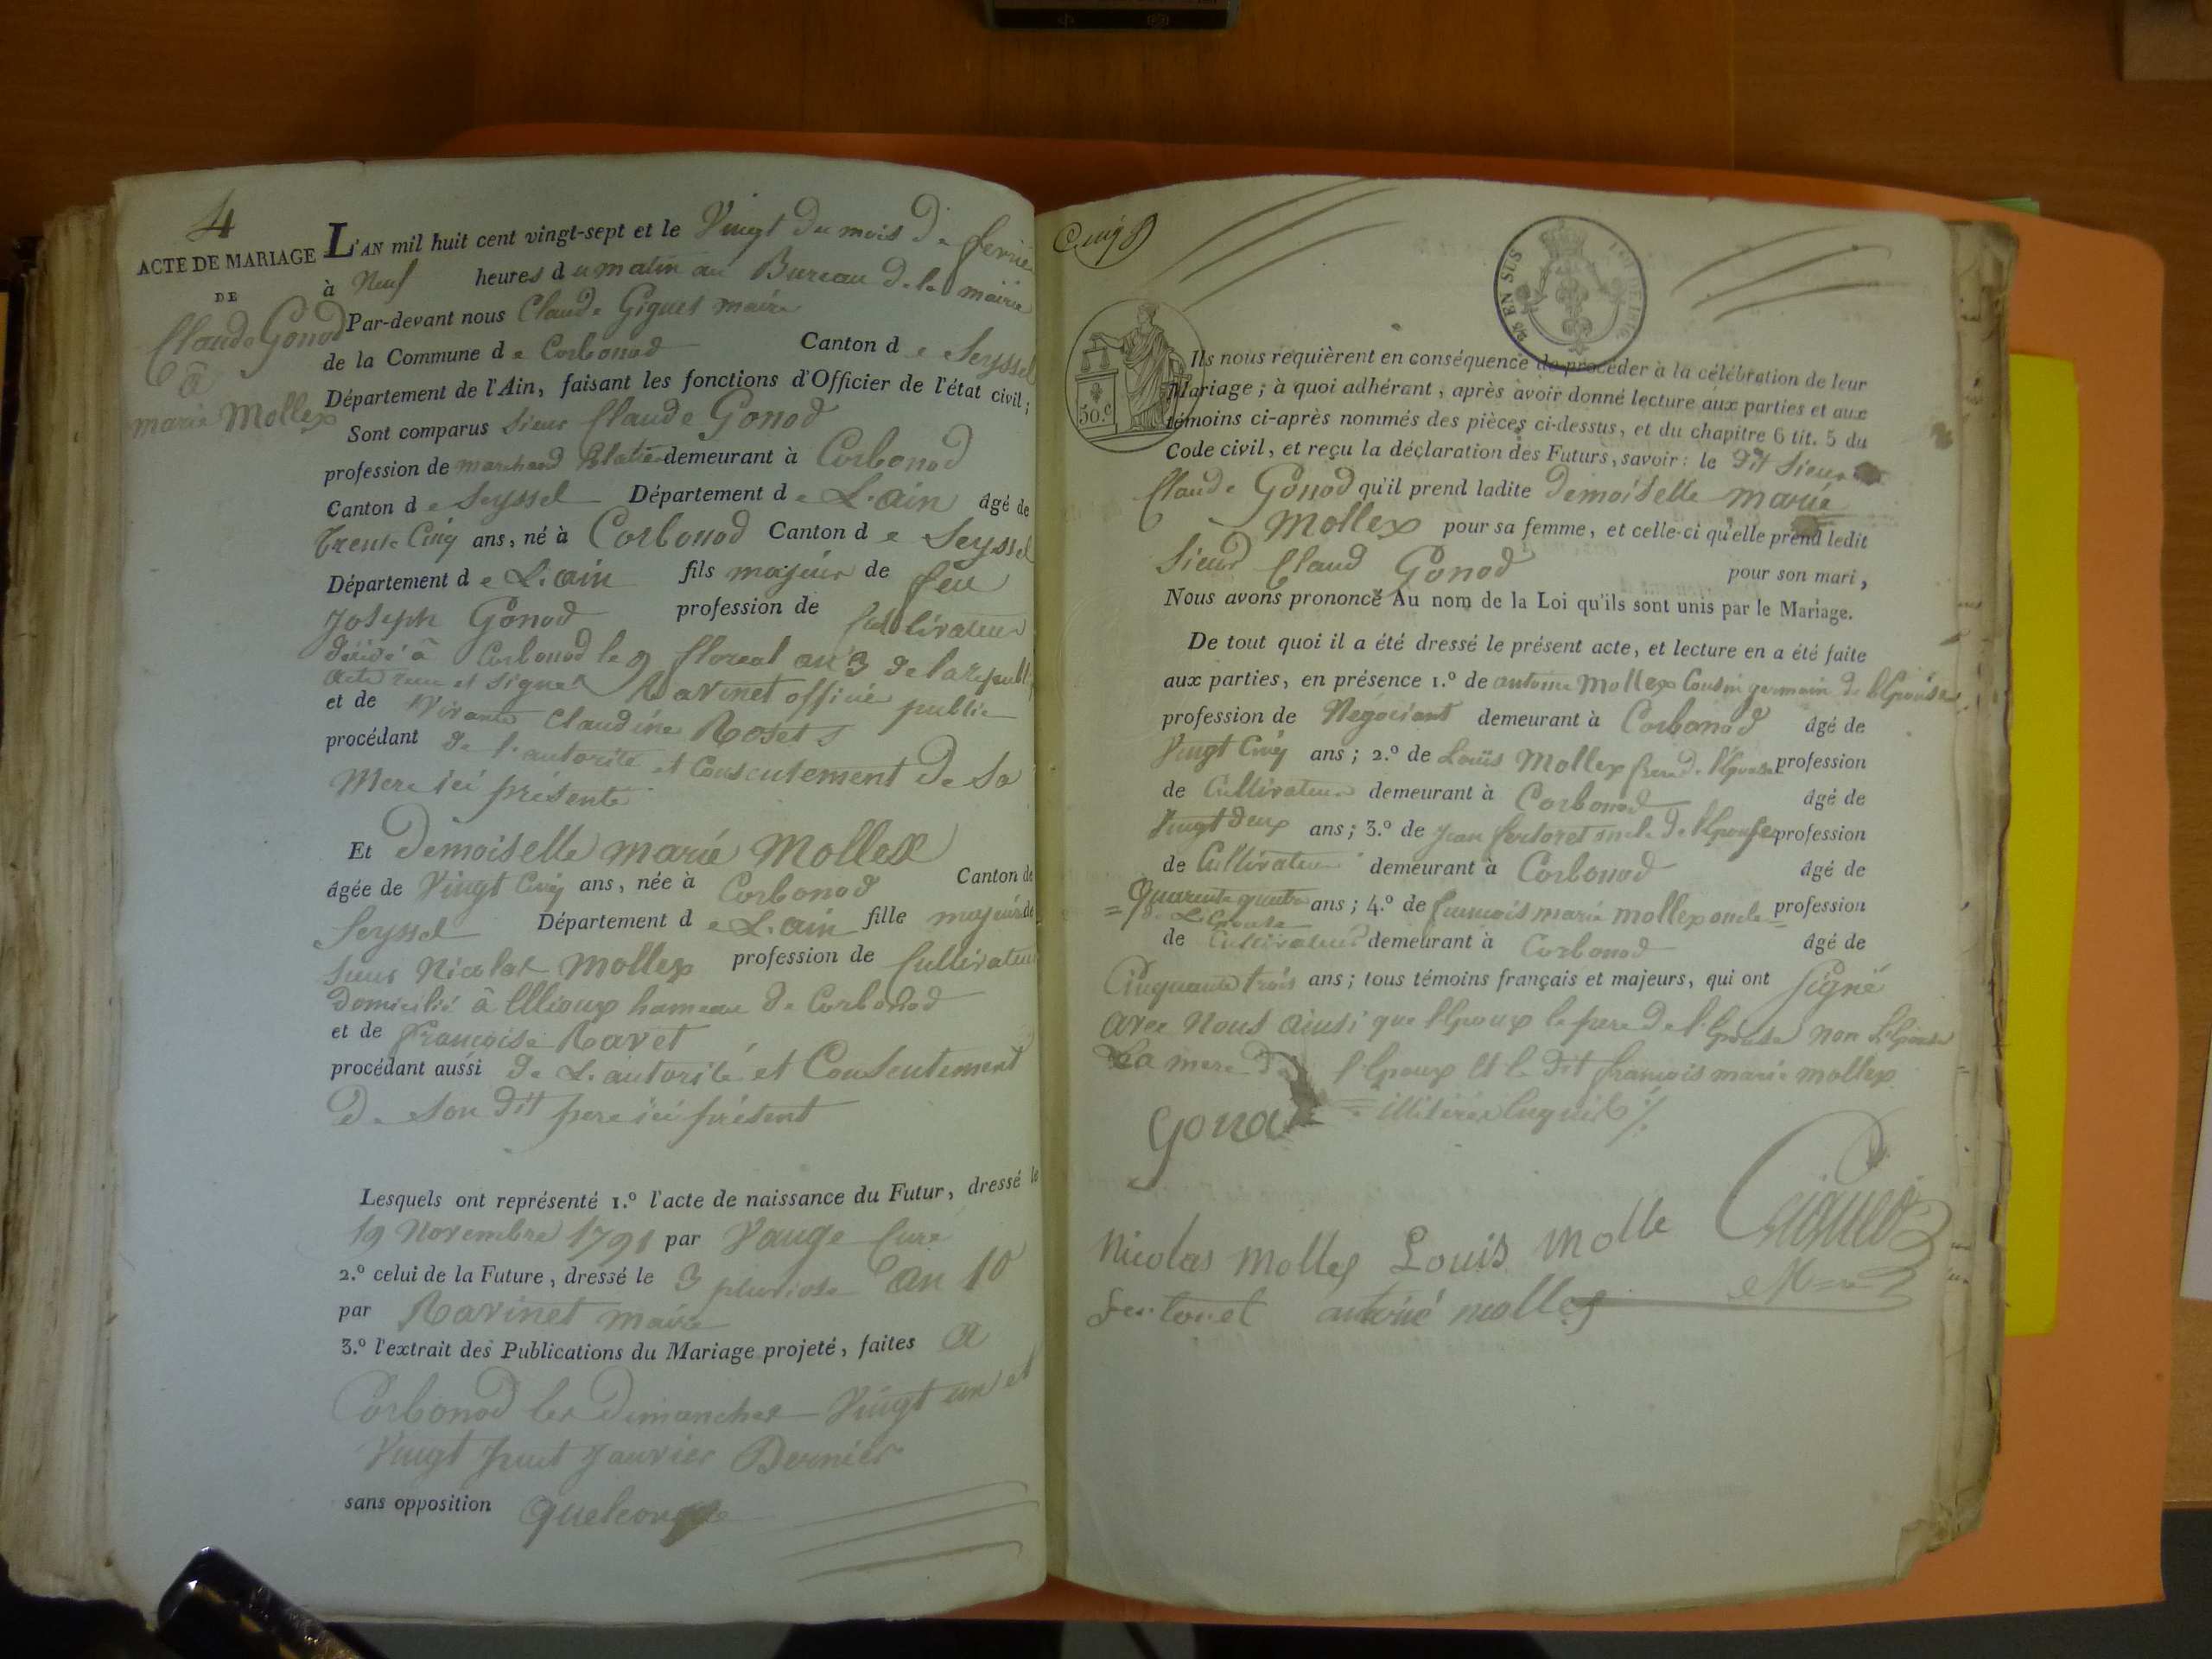 4
ACTE DE MARIAGE
DE
Claude Gonod
à
marie Mollex
L'AN mil huit cent vingt-sept et le Vingt du mois De fevrier
à Neuf heures du matin au Bureau de la mairie
Par-devant nous Claude Giguet maire
de la Commune de Corbonod Canton de Seyssel
Département de l'Ain, faisant les fonctions d'Officier de l'état civil;
Sont comparus Sieur Claude Gonod
profession de marchand demeurant à Corbonod
Canton de Seyssel Département de L'ain âgé de
Trente Cinq ans, né à Corbonod Canton de Seyssel
Département de L'ain fils majeur de feu
Joseph Gonod profession de Cultivateur
décédé à Corbonod le 9 floreal an 3 de la republ
acte recu et signé Ravinet officié public
et de Vivante Claudine Roset
procédant de l'autorité et Consentement De Sa
Mere ici présente
Et Demoiselle marie Mollex
âgée de Vingt Cinq ans, née à Corbonod Canton de
Seyssel Département de L'ain fille majeure de
Sieur Nicolas Mollex profession de Cultivateur
Domicilié à hameau de Corbonod
et de françoise Ravet
procédant aussi de L'autorité et Consentement
De son dit pere ici présent
Lesquels ont représenté 1.º l'acte de naissance du Futur, dressé le
19 Novembre 1791 par Vauge Curé
2.º celui de la Future, dressé le 3 pluviose an 10
par Ravinet maire
3.º l'extrait des Publications du Mariage projeté, faites a
Corbonod les Dimanches Vingt un et
Vingt huit Janvier Dernier
sans opposition quelconque
Cinq
EN SUS
50.C
Ils nous requièrent en conséquence de procéder à la célébration de leur
Mariage; à quoi adhérant, après avoir donné lecture aux parties et aux
témoins ci-après nommés des pièces ci-dessus, et du chapitre 6 tit. 5 du
Code civil, et reçu la déclaration des Futurs, savoir: le dit Sieur
Claude Gonod qu'il prend ladite Demoiselle marie
Mollex pour sa femme, et celle-ci qu'elle prend ledit
Sieur Claud Gonod pour son mari,
Nous avons prononcé Au nom de la Loi qu'ils sont unis par le Mariage.
De tout quoi il a été dressé le présent acte, et lecture en a été faite
aux parties, en présence 1.º de antoine Mollex Cousin germain de l'Epouse
profession de Négociant demeurant à Corbonod âgé de
Vingt Cinq ans; 2.º de Louis Mollex frere de l'Epouse profession
de Cultivateur demeurant à Corbonod âgé de
Vingt deux ans; 3.º de Jean fertoret oncle de l'Epouse profession
de Cultivateur demeurant à Corbonod âgé de
Quarente quatre ans; 4.º de françois marie mollex oncle profession
de L'Epouse
de Cultivateur demeurant à Corbonod âgé de
Cinquante trois ans; tous témoins français et majeurs, qui ont signé
avec Nous ainsi que l'Epoux le pere de l'Epouse non l'Epouse
La mere de l'Epoux et le dit françois marie mollex
illitéré Enquis
Gonod
Giguet
Nicolas Mollex Louis Molle
fertoret antoine mollex